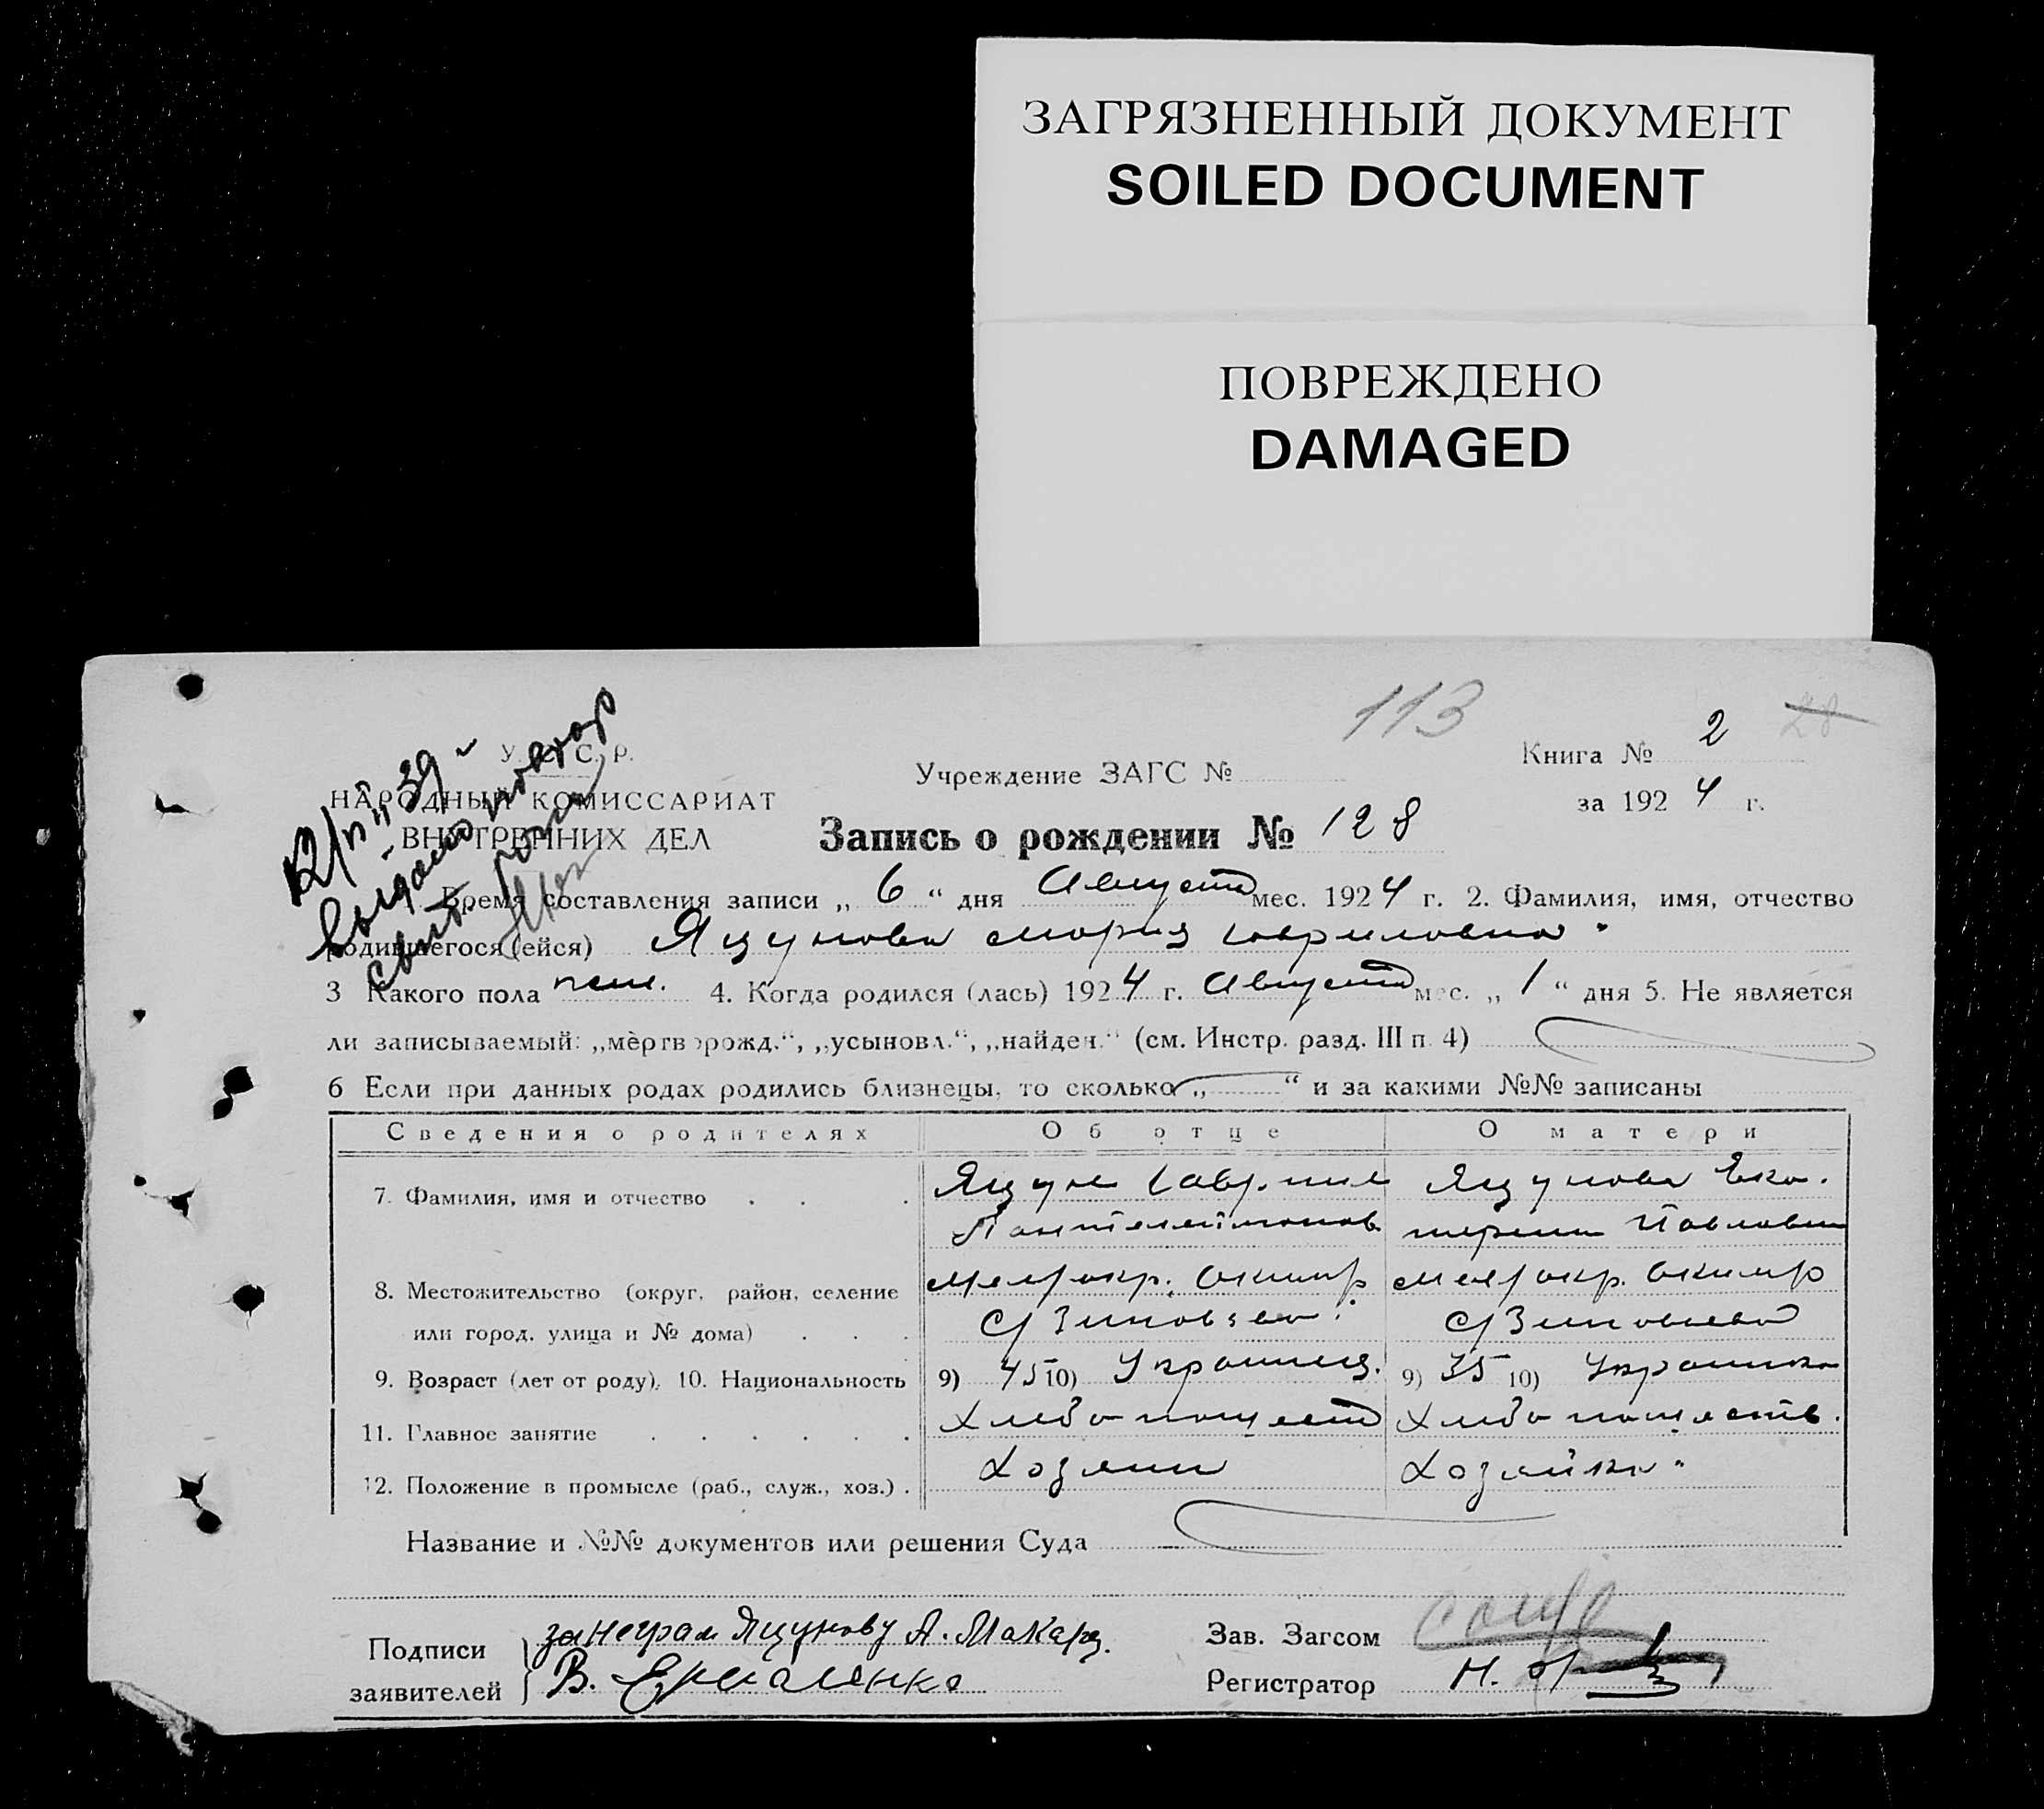 ЗАГРЯЗНЕННЫЙ ДОКУМЕНТ
SOILED DOCUMENT
ПОВРЕЖДЕНО
DAMAGED
113
28
У. С. С. Р.
НАРОДНЫЙ КОМИССАРИАТ
ВНУТРЕННИХ ДЕЛ
Учреждение ЗАГС №
Книга № 2
за 1924 г.
Запись о рождении № 128
39
выдано повтор
Время составления записи „ 6 “ дня Августа мес. 1924 г. 2. Фамилия, имя, отчество
родившегося (ейся) Яцунова Мария Гавриловна
3 Какого пола жен. 4. Когда родился (лась) 1924 г. Августа мес. „ 1 “ дня 5. Не является
ли записываемый: „мёртворожд.“, „усыновл.“, „найден.“ (см. Инстр. разд. III п. 4)
6 Если при данных родах родились близнецы, то сколько „ “ и за какими №№ записаны
Сведения о родителях Об отце О матери
7. Фамилия, имя и отчество Яцун Гавриил Яцунова Ека-
Пантелеймонов терина Павловн
8. Местожительство (округ, район, селение Мел/окр. Акимр Мел/окр. Акимр
или город, улица и № дома) с/Зиновьево с/Зиновьево
9. Возраст (лет от роду). 10. Национальность 9) 45 10) Украинец. 9) 35 10) Украинка
11. Главное занятие Хлебопашест Хлебопашеств.
12. Положение в промысле (раб., служ., хоз.) Хозяин Хозяйка
Название и №№ документов или решения Суда
Подписи за неграм Яцунову А. Макарц.
заявителей В. Ермаленко
Зав. Загсом
Регистратор Н.